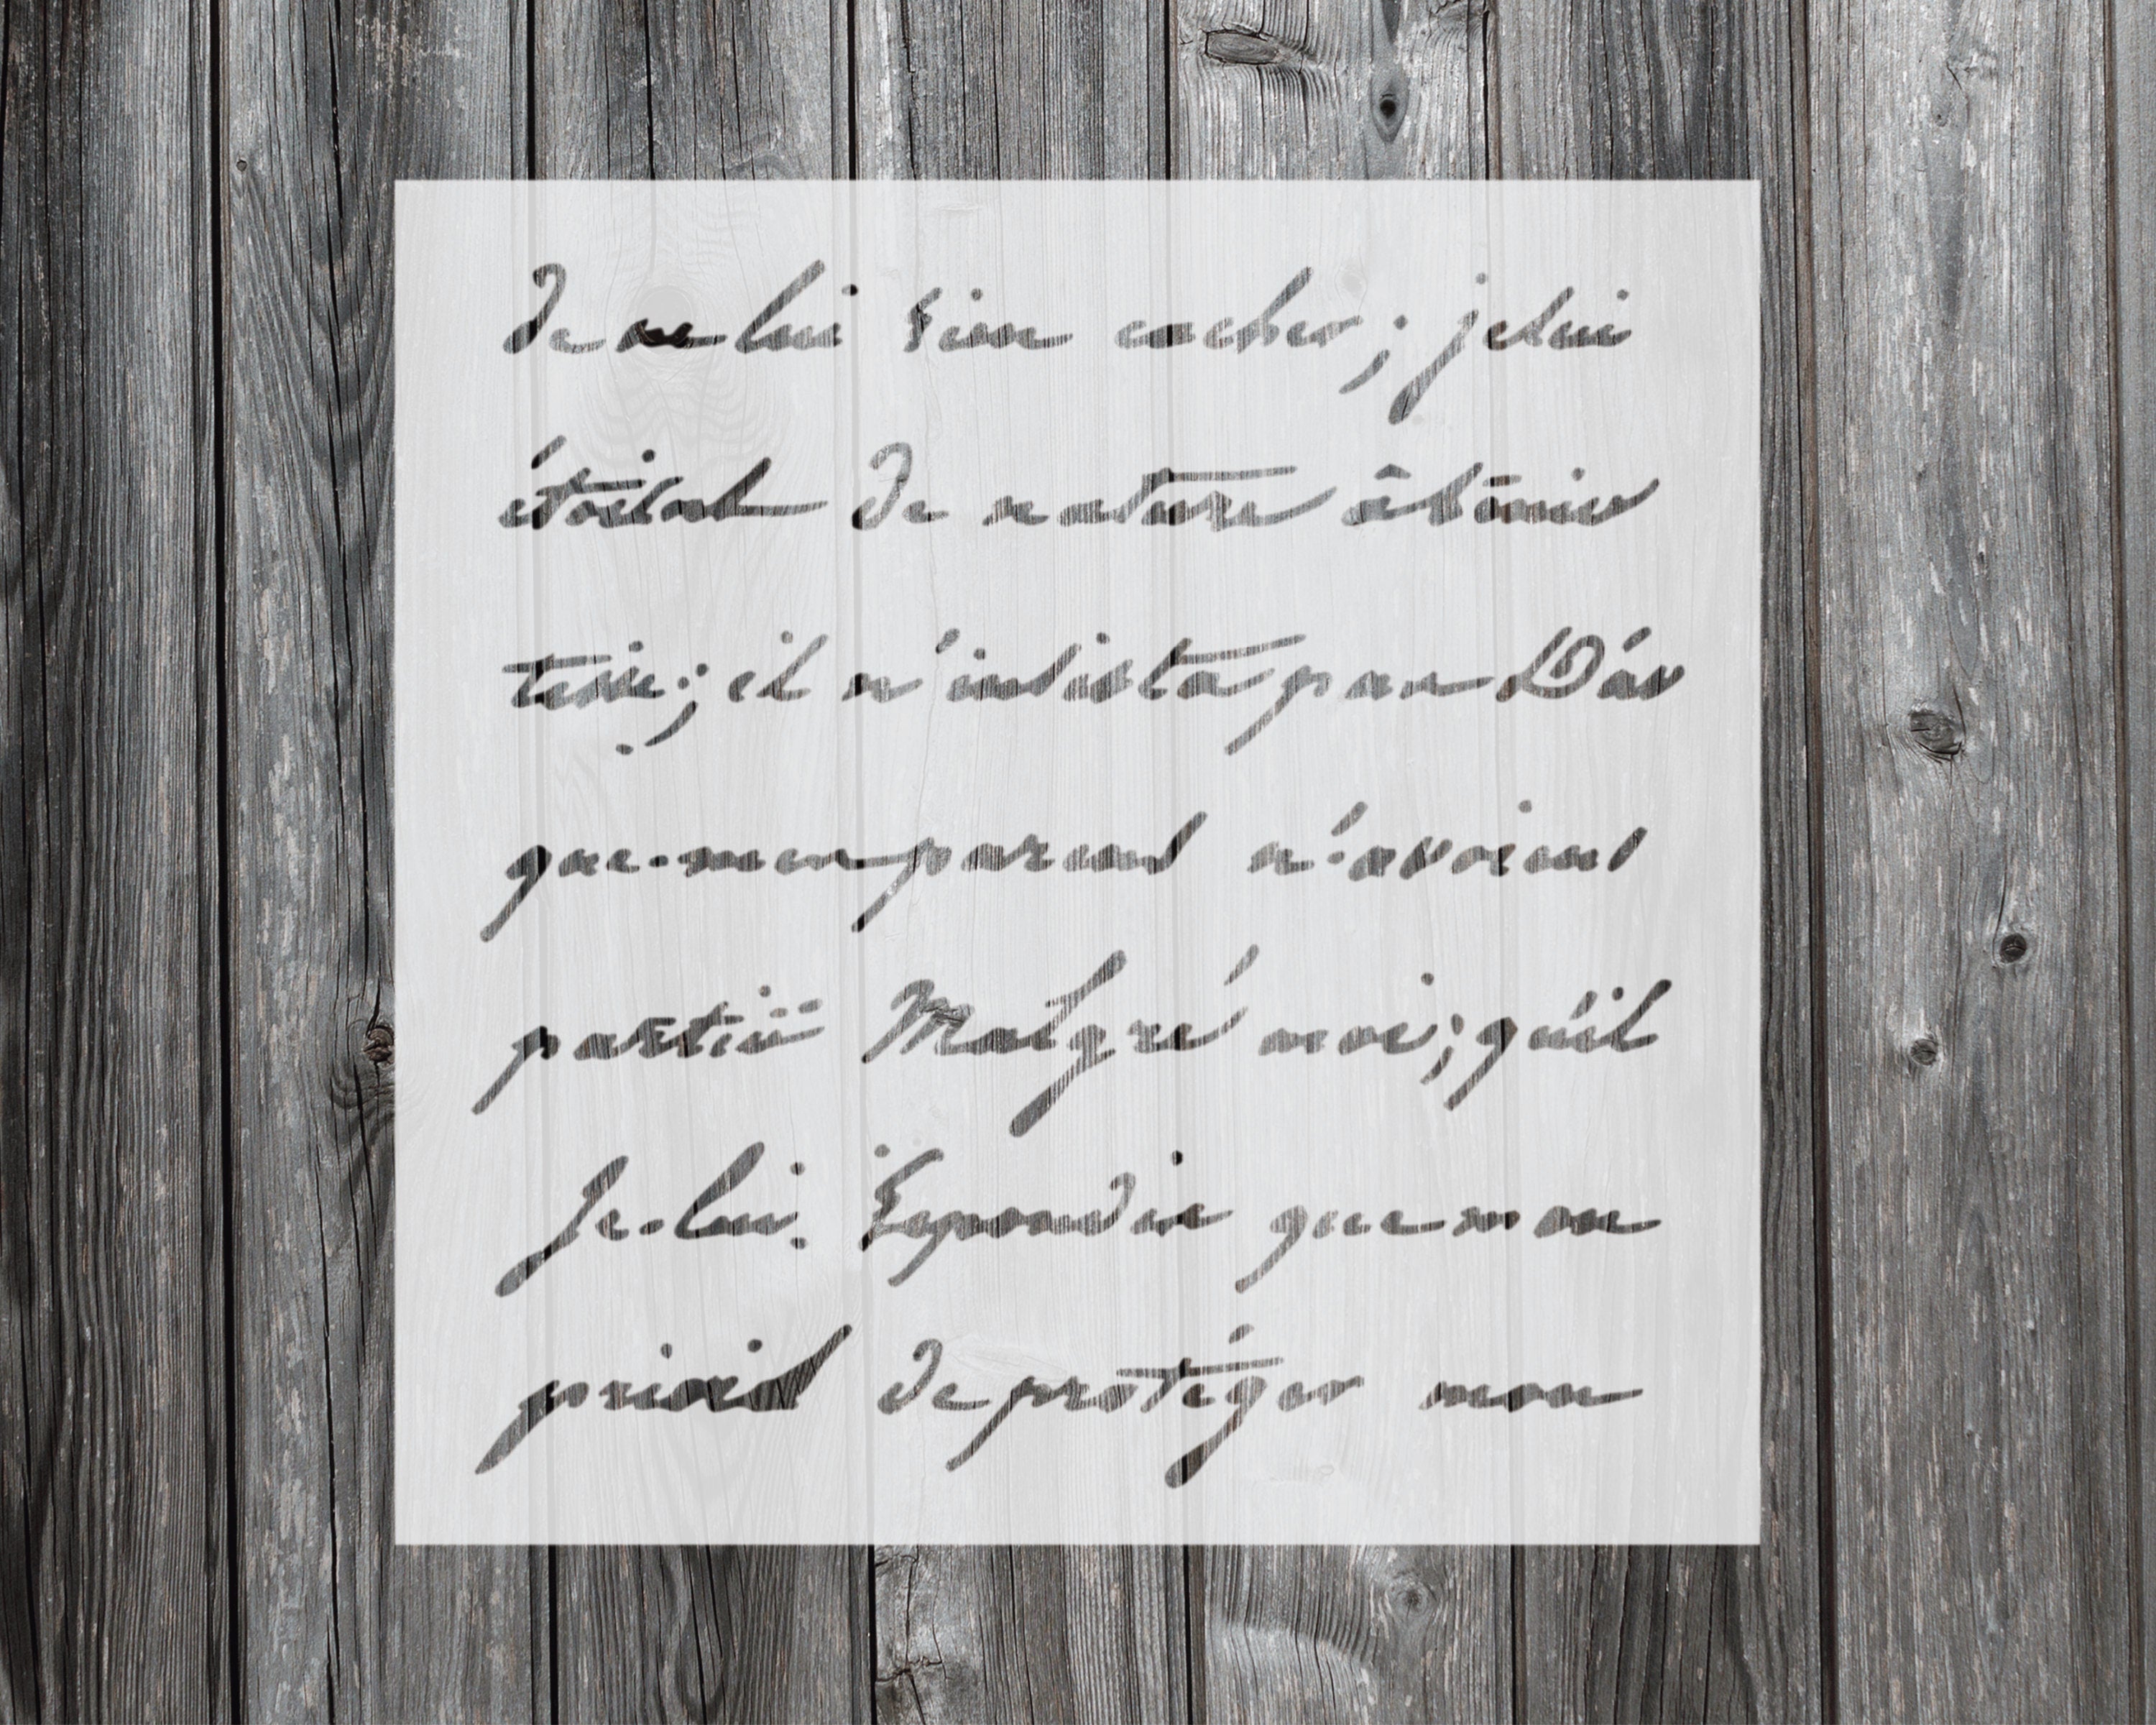 de ne lui rien cacher; je lui
de nature
il n'insista pas
que mes parens n'avoient
partir Malgré moi; qu'il
Je lui répondis que mon
prioit de protéger mon